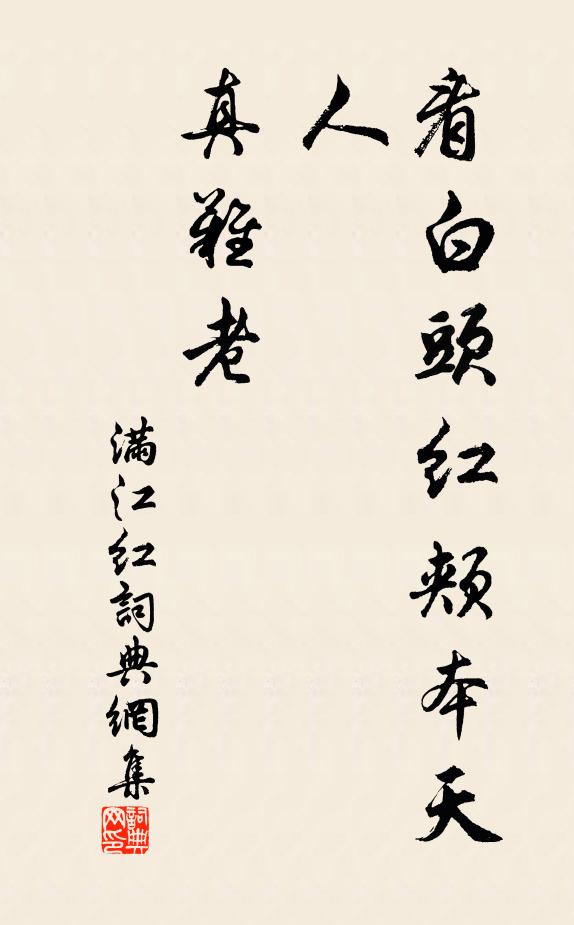 看白頭紅頰本天
人
真難老
滿江紅詞典網集
詞典
网印